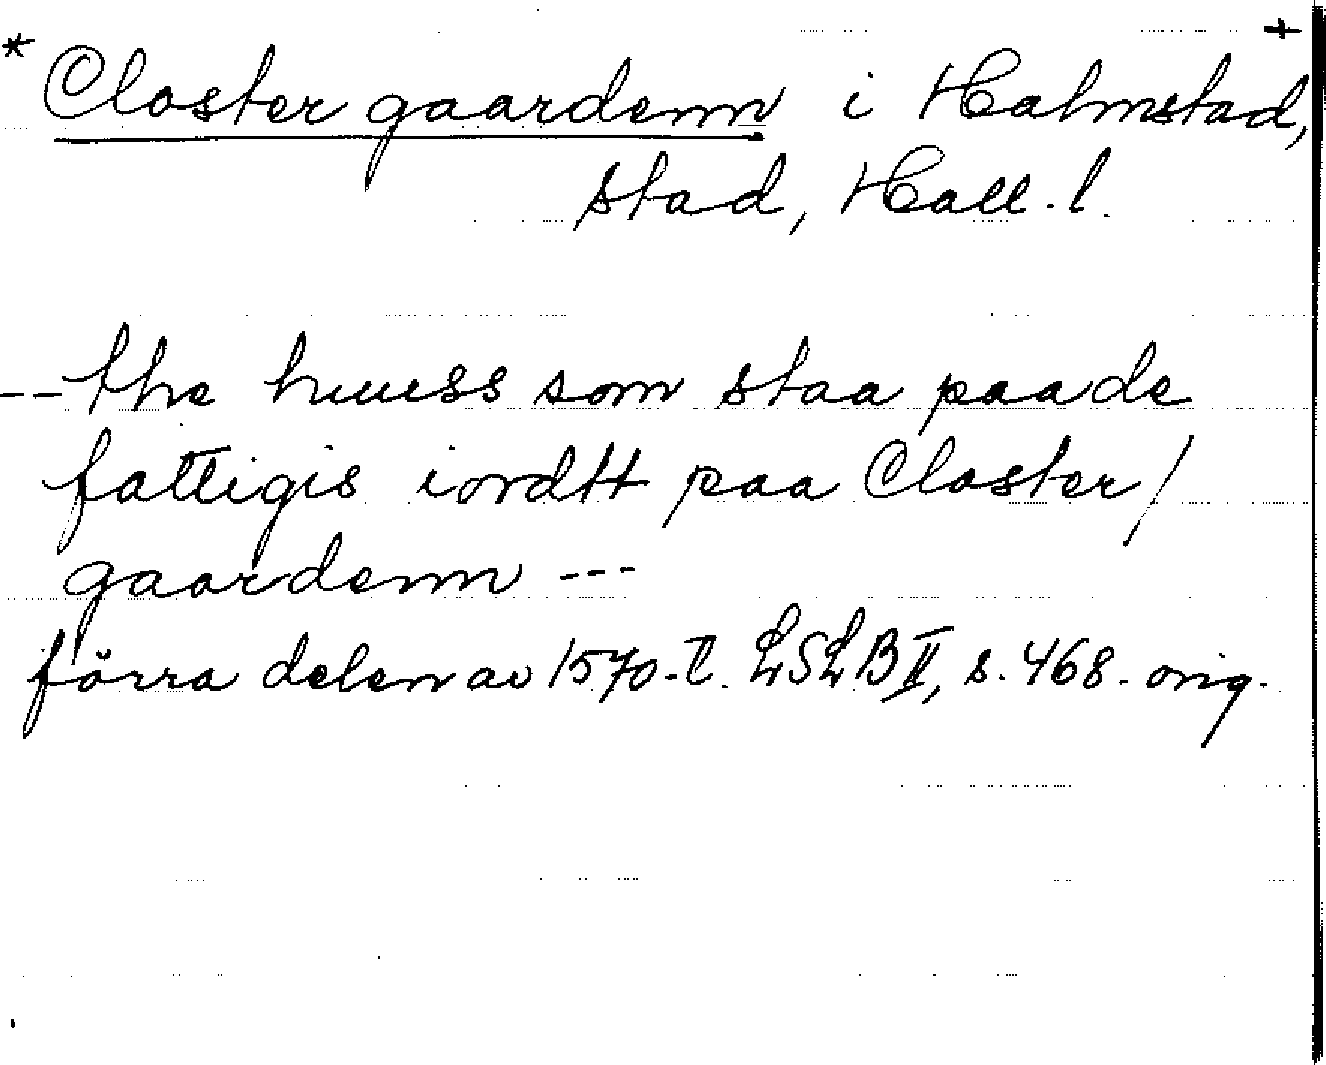 * Closter gaardenn i Halmstad, +
stad, Hall. l.
-- the huuess som staa paa de
fattigis iordtt paa Closter/
gaardenn ---
förra delen av 1570-t. LSLB II, s. 468. orig.